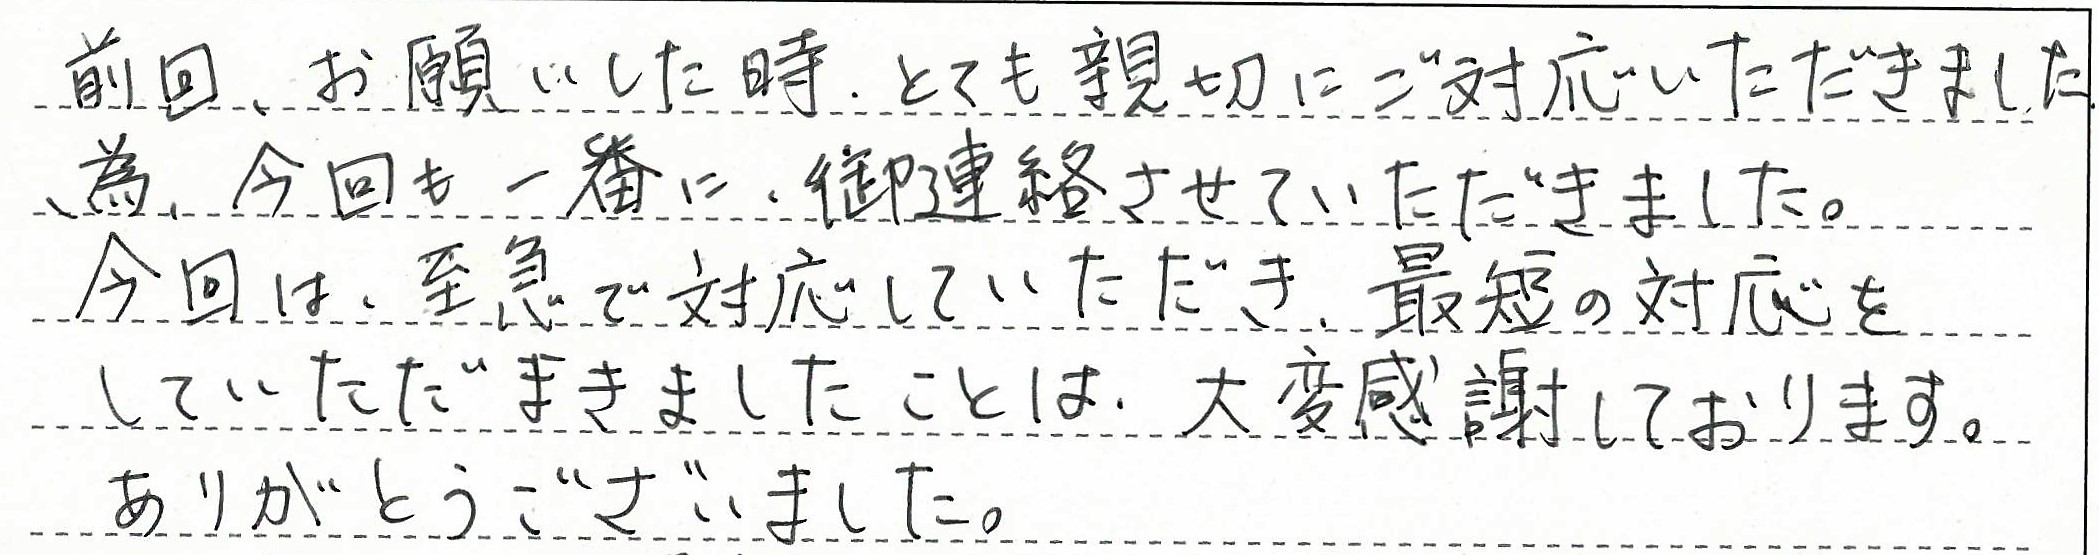 前回、お願いした時、とても親切にご対応いただきました
為、今回も一番に、御連絡させていただきました。
今回は、至急で対応していただき、最短の対応を
していただまきましたことは、大変感謝しております。
ありがとうございました。